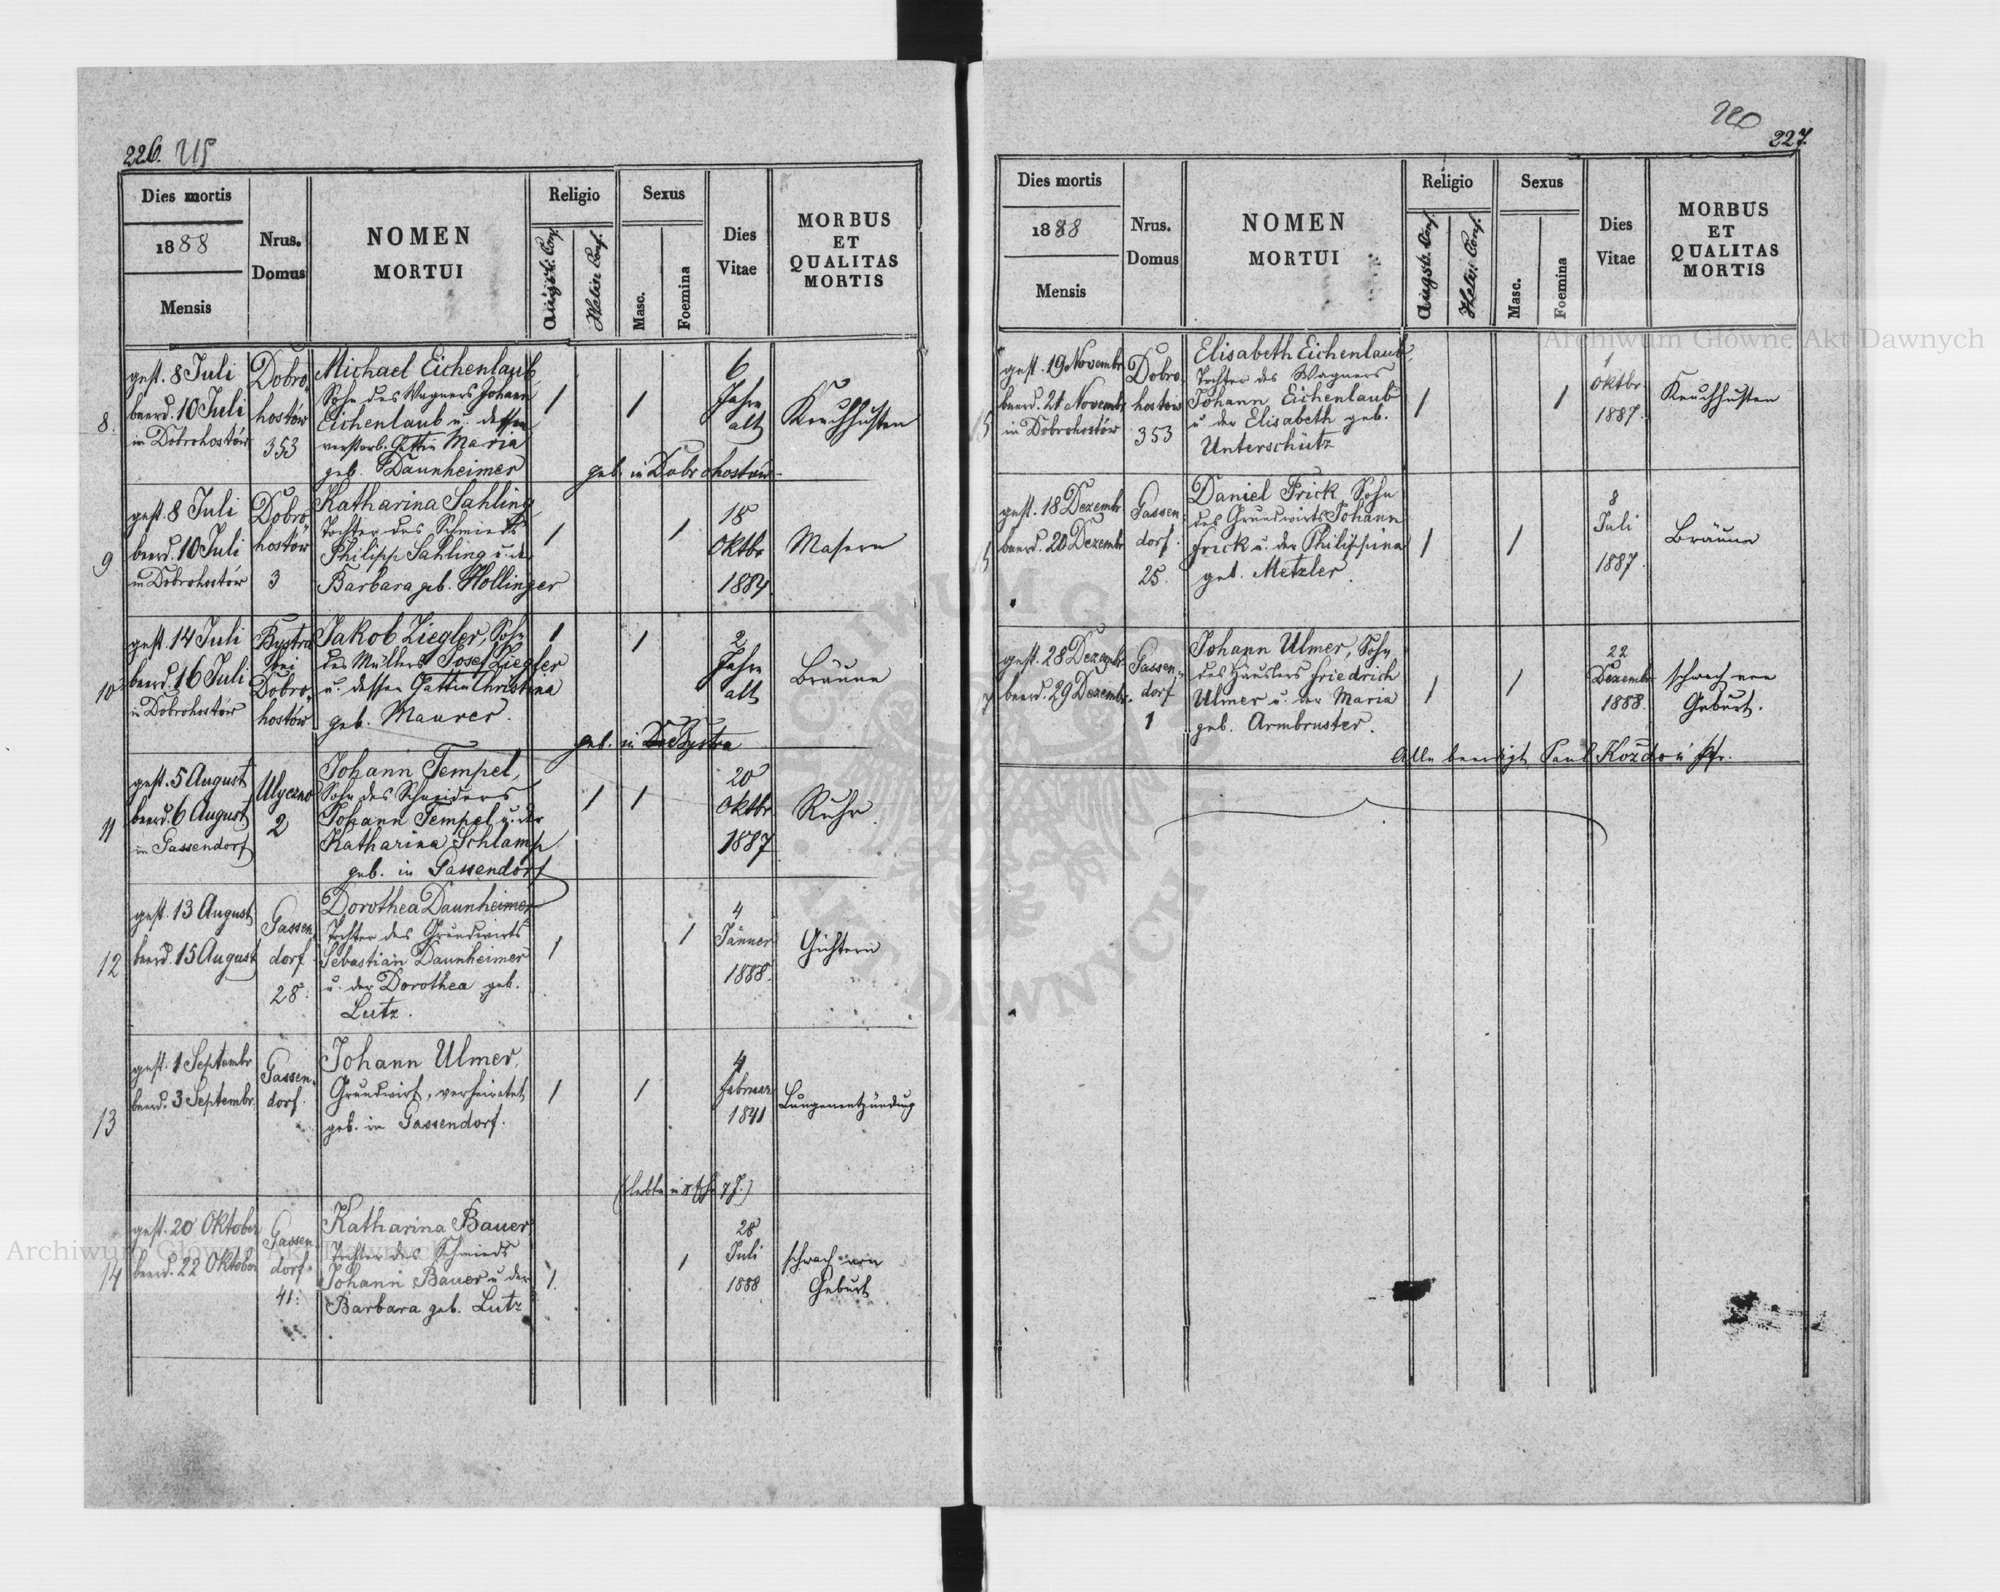 226.
Dies mortis
1888
Mensis
Nrus.
Domus
NOMEN
MORTUI
Religio
Augsb. Conf.
Helv. Conf.
Sexus
Masc.
Foemina
Dies
Vitae
MORBUS
ET
QUALITAS
MORTIS
8.
gest. 8 Juli
beerd. 10 Juli
in Dobrohostów
Dobro
hostów
353
Michael Eichenlaub
Sohn des Wagners Johann
Eichenlaub u. dessen
verstorb. Gattin Maria
geb. Daunheimer
geb. in Dobrohostów
/
/
6
Jahre
alt
Keuchhusten
9
gest. 8 Juli
beerd. 10 Juli
in Dobrohostów
Dobro
hostów
3
Katharina Sahling
Tochter des Schmieds
Philipp Sahling u. der
Barbara geb. Hollinger
/
/
18
Oktbr
1884
Masern
10
gest. 14 Juli
beerd. 16 Juli
in Dobrohostów
Bystra
bei
Dobro
hostów
Jakob Ziegler, Sohn
des Müllers Josef Ziegler
u. dessen Gattin Christina
geb. Maurer.
geb. in Bystra
/
/
2
Jahre
alt
Bräune
11
gest. 5 August
beerd. 6 August
in Gassendorf
Ulyczno
2
Johann Tempel,
Sohn des Schneiders
Johann Tempel u. der
Katharina Schlamp
geb. in Gassendorf
/
/
20
Oktbr
1887
Ruhr
12
gest. 13 August
beerd. 15 August
Gassen
dorf
28.
Dorothea Daunheimer
Tochter des Grundwirts
Sebastian Daunheimer
u. der Dorothea geb.
Lutz.
/
/
4
Jänner
1888
Gichtern
13
gest. 1 Septembr
beerd. 3 Septembr.
Gassen-
dorf
Johann Ulmer,
Grundwirt, verheiratet
geb. in Gassendorf.
/
/
4
Februar
1841
Lungenentzündung
(lebte in 7 J.)
14
gest. 20 Oktober
beerd. 22 Oktober
Gassen
dorf
41.
Katharina Bauer
Tochter des Schmieds
Johann Bauer u. der
Barbara geb. Lutz
/
/
28
Juli
1888
schwach von
Geburt
227.
Dies mortis
1888
Mensis
Nrus.
Domus
NOMEN
MORTUI
Religio
Augsb. Conf.
Helv. Conf.
Sexus
Masc.
Foemina
Dies
Vitae
MORBUS
ET
QUALITAS
MORTIS
gest. 19 Novembr
beerd. 21 Novembr
in Dobrohostów
Dobro
hostów
353
Elisabeth Eichenlaub
Tochter des Wagners
Johann Eichenlaub
u. der Elisabeth geb.
Unterschütz
/
/
1
Oktbr
1887.
Keuchhusten
gest. 18 Dezembr
beerd. 20 Dezembr
Gassen
dorf
25.
Daniel Frick, Sohn
des Grundwirts Johann
Frick u. der Philippina
geb. Metzler.
/
/
8
Juli
1887.
Bräune
gest. 28 Dezembr
beerd. 29 Dezembr.
Gassen-
dorf
1
Johann Ulmer, Sohn
des Häuslers Friedrich
Ulmer u. der Maria
geb. Armbruster.
/
/
22
Dezembr
1888.
schwach von
Geburt.
Alle beerdigt Paul Kozdoń Pfr.
Archiwum Główne Akt Dawnych
Archiwum Główne Akt Dawnych
ARCHIWUM GŁÓWNE AKT DAWNYCH